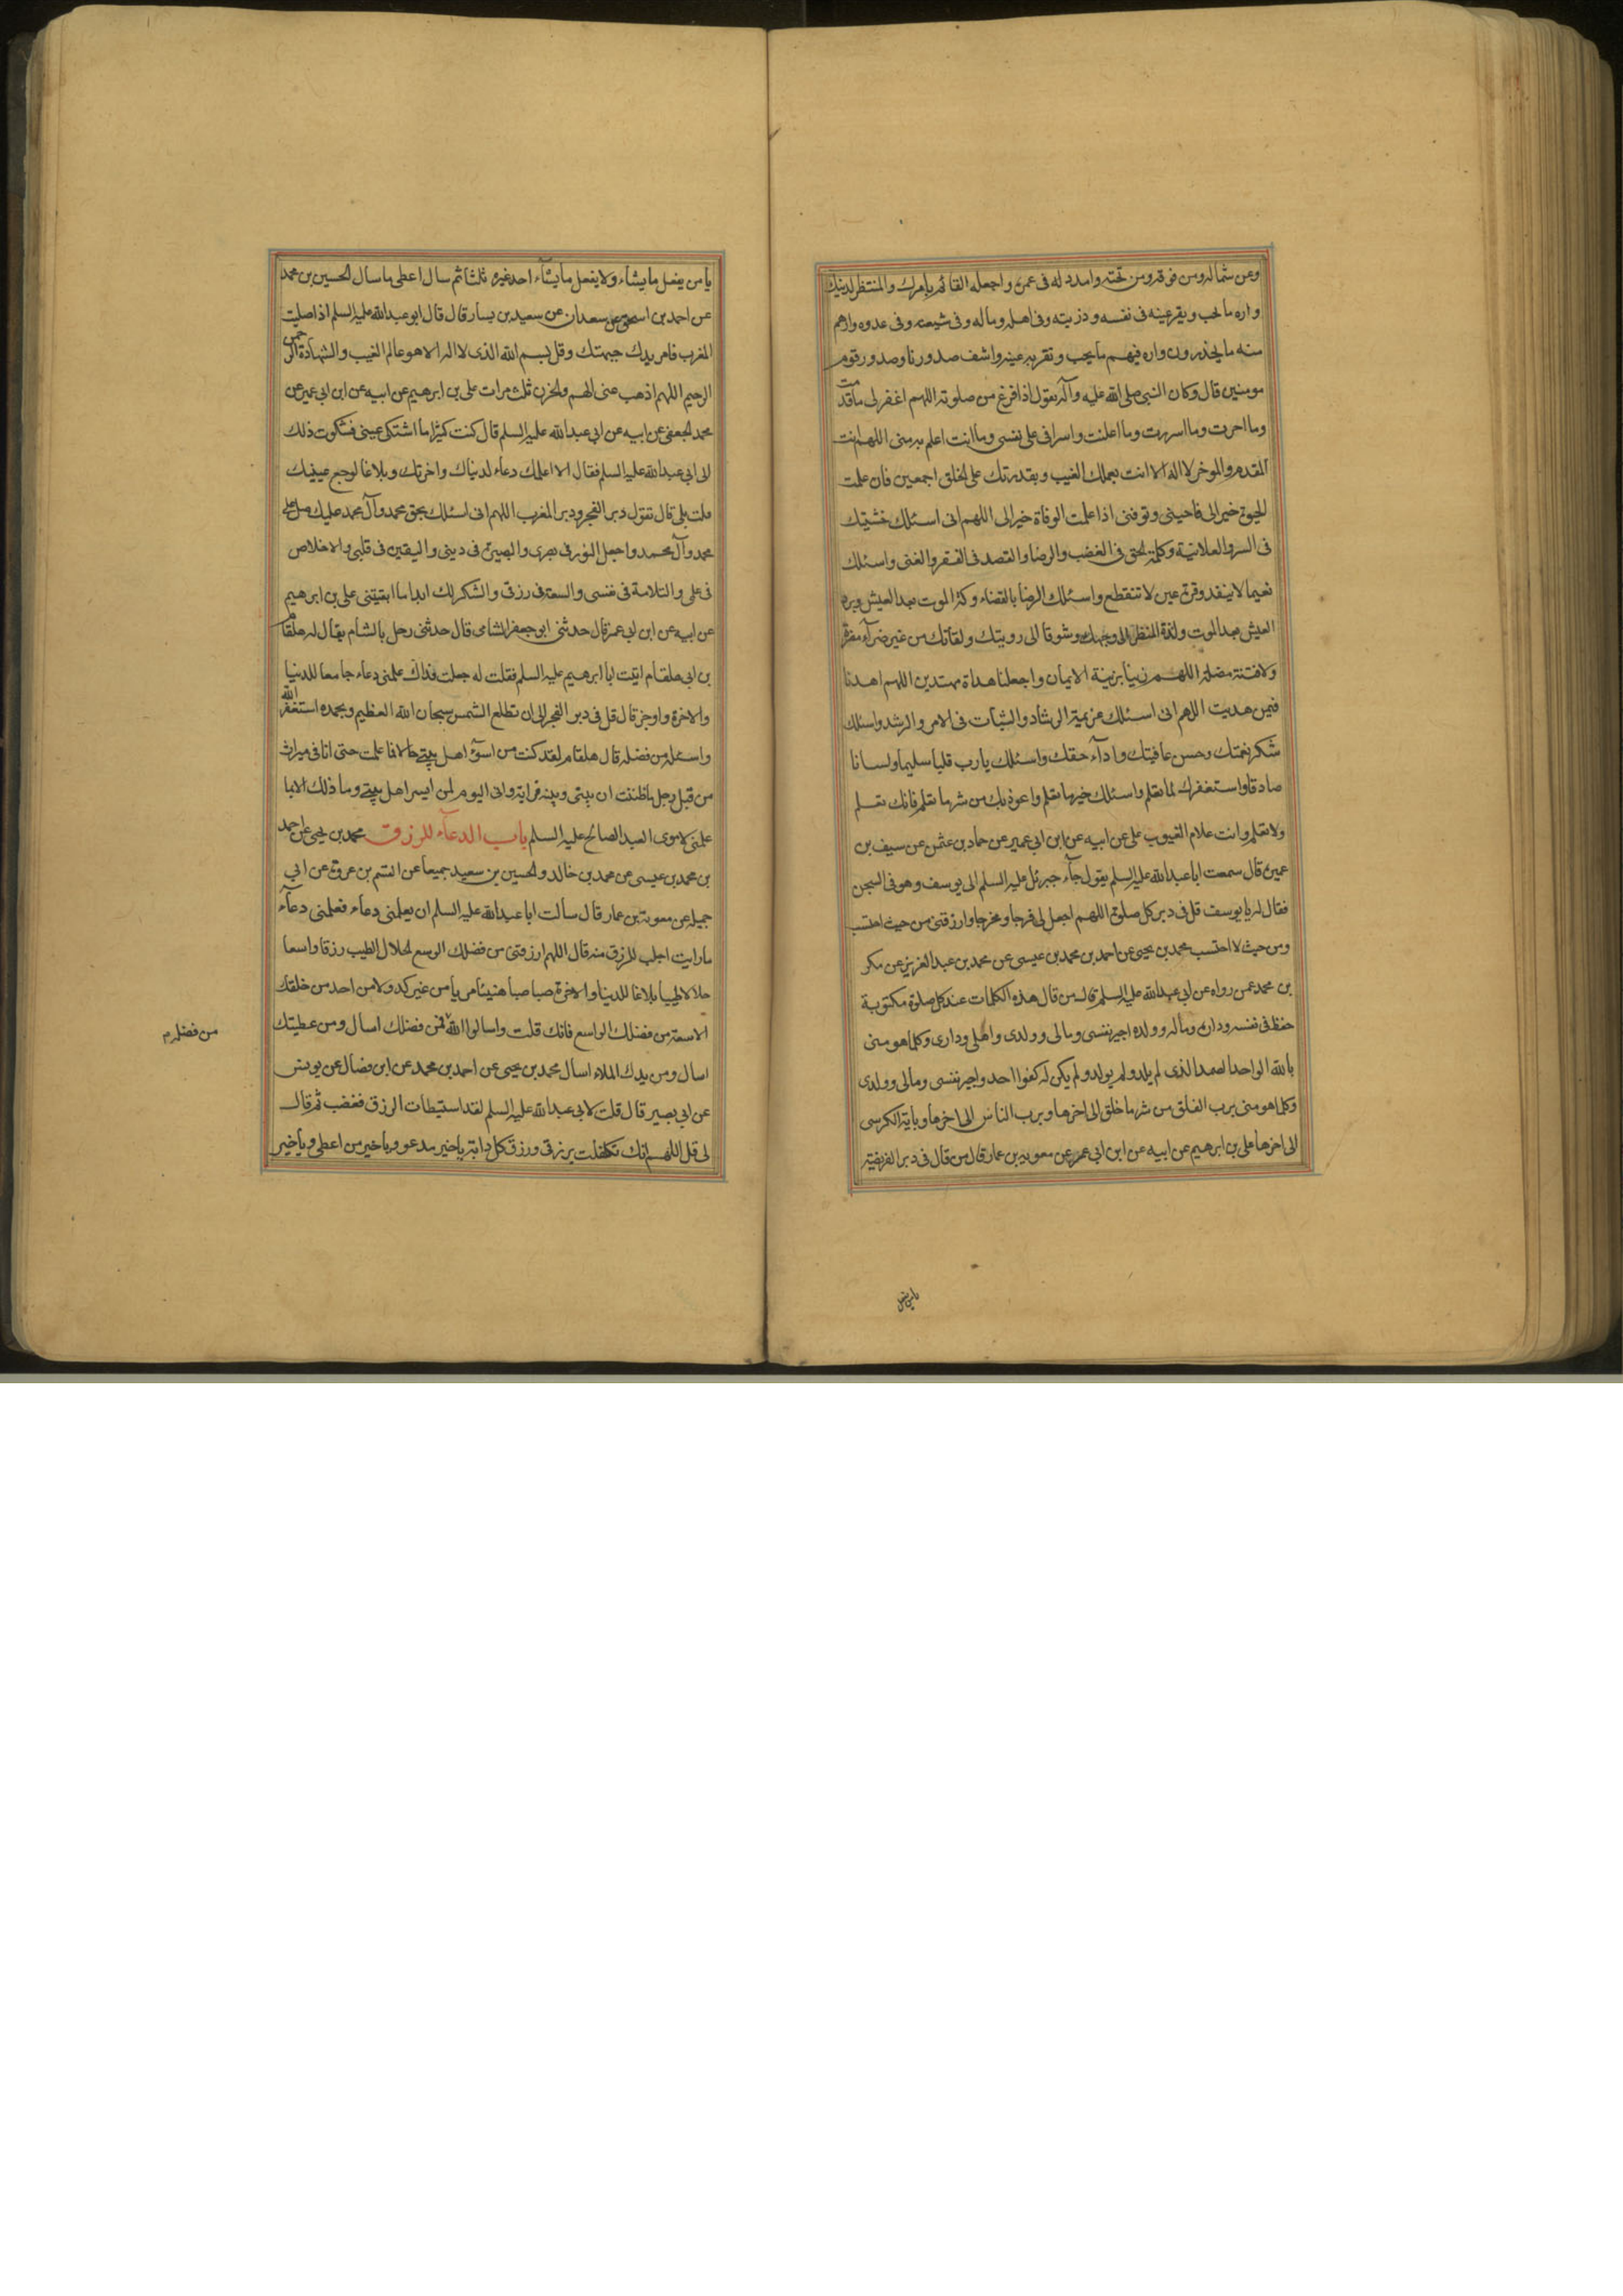 وعن شماله ومن فوقه ومن تحته وامدد له في عمره واجعله القائم بامرك والمنتظر لدينك
واره ما يحب ويقر عينه في نفسه وذريته وفي اهله وماله وفي شيعته وفي عدوه وارهم
منه ما يحذرون واره فيهم ما يحب وتقر به عينه واشف صدورنا وصدور قوم
مومنين قال وكان النبي صلى الله عليه وآله يقول اذا فرغ من صلوته اللهم اغفر لي ما قدمت
وما اخرت وما اسررت وما اعلنت واسرافي على نفسي وما انت اعلم به مني اللهم انت
المقدم والموخر لا اله الا انت بعلمك الغيب وبقدرتك على الخلق اجمعين فان علمت
الحيوة خيرا لي فاحيني وتوفني اذا علمت الوفاة خيرا لي اللهم اني اسئلك خشيتك
في السر والعلانية وكلمة الحق في الغضب والرضا والقصد في الفقر والغنى واسئلك
نعيما لا ينفد وقرة عين لا تنقطع واسئلك الرضا بالقضاء وكذا الموت بعد العيش وبرد
العيش بعد الموت ولذة المنظر الى وجهك وشوقا الى رويتك ولقائك من غير ضرآء مضرة
ولا فتنة مضلة اللهم زينا بزينة الايمان واجعلنا هداة مهتدين اللهم اهدنا
فيمن هديت اللهم اني اسئلك عزيمة الرشاد والثبات في الامر والرشد واسئلك
شكر نعمتك وحسن عافيتك واداء حقك واسئلك يارب قلبا سليما ولسانا
صادقا واستغفرك لما تعلم واسئلك خير ما تعلم واعوذ بك من شر ما تعلم فانك تعلم
ولا نعلم وانت علام الغيوب علي عن ابيه عن ابن ابي عمير عن حماد بن عثمن عن سيف بن
عميرة قال سمعت ابا عبدالله عليه السلم يقول جآء جبرئل عليه السلم الى يوسف وهو في السجن
فقال له يا يوسف قل في دبر كل صلوة اللهم اجعل لي فرجا ومخرجا وارزقني من حيث احتسب
ومن حيث لا احتسب محمد بن يحيى عن احمد بن محمد بن عيسى عن محمد بن عبد العزيز عن بكر
بن محمد عمن رواه عن ابي عبدالله عليه السلم قال من قال هذه الكلمات عند كل صلوة مكتوبة
حفظ في نفسه وداره وماله وولده اجير نفسي ومالي وولدي واهلي وداري وكلما هو مني
بالله الواحد الصمد الذي لم يلد ولم يولد ولم يكن له كفوا احد واجير نفسي ومالي وولدي
وكلما هو مني برب الفلق من شر ما خلق الى اخرها وبرب الناس الى اخرها وباية الكرسي
الى اخرها علي بن ابرهيم عن ابيه عن ابن ابي عمير عن معوية بن عمار قال من قال في دبر الفريضة
يا من يفعل
يا من يفعل ما يشاء ولا يفعل ما يشآء احد غيره ثلثا ثم سال اعطى ما سال الحسين بن محمد
عن احمد بن اسحق عن سعدان عن سعيد بن يسار قال قال ابو عبدالله عليه السلم اذا صليت
المغرب فامر يدك جبهتك وقل بسم الله الذي لا اله الا هو عالم الغيب والشهادة الرحمن
الرحيم اللهم اذهب عني الهم والحزن ثلث مرات علي بن ابرهيم عن ابيه عن ابن ابي عمير عن
محمد الجعفي عن ابيه عن ابي عبدالله عليه السلم قال كنت كثيرا ما اشتكي عيني فشكوت ذلك
الى ابي عبدالله عليه السلم فقال الا اعلمك دعاء لدنياك واخرتك وبلاغا لوجع عينيك
قلت بلى قال تقول دبر الفجر ودبر المغرب اللهم اني اسئلك بحق محمد وآل محمد عليك صل على
محمد وآل محمد واجعل النور في بصري والبصيرة في ديني واليقين في قلبي والاخلاص
في عملي والسلامة في نفسي والسعة في رزقي والشكر لك ابدا ما ابقيتني علي بن ابرهيم
عن ابيه عن ابن ابي عمير قال حدثني ابو جعفر الشامي قال حدثني رجل بالشام يقال له هلقام
بن ابي هلقام اتيت ابا ابرهيم عليه السلم فقلت له جعلت فداك علمني دعاء جامعا للدنيا
والاخرة واوجز قال قل في دبر الفجر الى ان تطلع الشمس سبحان الله العظيم وبحمده استغفر الله
واسئله من فضله قال هلقام لقد كنت من اسوء اهل بيتي حالا فما علمت حتى اتاني ميراث
من قبل رجل ما ظننت ان بيني وبينه قرابة واني اليوم لمن ايسر اهل بيتي وما ذلك الا بما
علمني مولاي العبد الصالح عليه السلم باب الدعآء للرزق محمد بن يحيى عن احمد
بن محمد بن عيسى عن محمد بن خالد والحسين بن سعيد جميعا عن القسم بن عروة عن ابي
جميلة عن معوية بن عمار قال سالت ابا عبدالله عليه السلم ان يعلمني دعآء فعلمني دعآء
ما رايت اجلب للرزق منه قال اللهم ارزقني من فضلك الوسع الحلال الطيب رزقا واسعا
حلالا طيبا بلاغا للدنيا والاخرة صبا صبا هنيئا مريا من غير كد ولا من احد من خلقك
الا سعة من فضلك الواسع فانك قلت واسالوا الله فمن فضلك اسال ومن عطيتك
من فضله م
اسال ومن يدك الملاء اسال محمد بن يحيى عن احمد بن محمد عن ابن فضال عن يونس
عن ابي بصير قال قلت لابي عبدالله عليه السلم لقد استبطات الرزق فغضب ثم قال
لي قل اللهم انك تكفلت برزقي ورزق كل دابة يا خير مدعو ويا خير من اعطى ويا خير